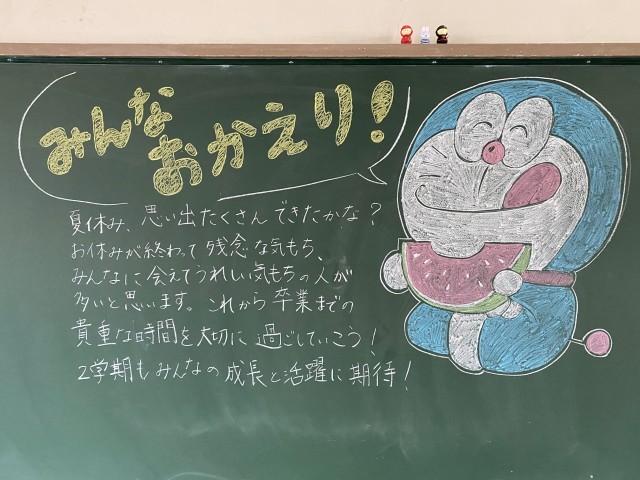 みんな
おかえり!
夏休み、思い出たくさんできたかな?
お休みが終わって残念な気もち、
みんなに会えてうれしい気もちの人が
多いと思います。これから卒業までの
貴重な時間を大切に過ごしていこう!
2学期もみんなの成長と活躍に期待!